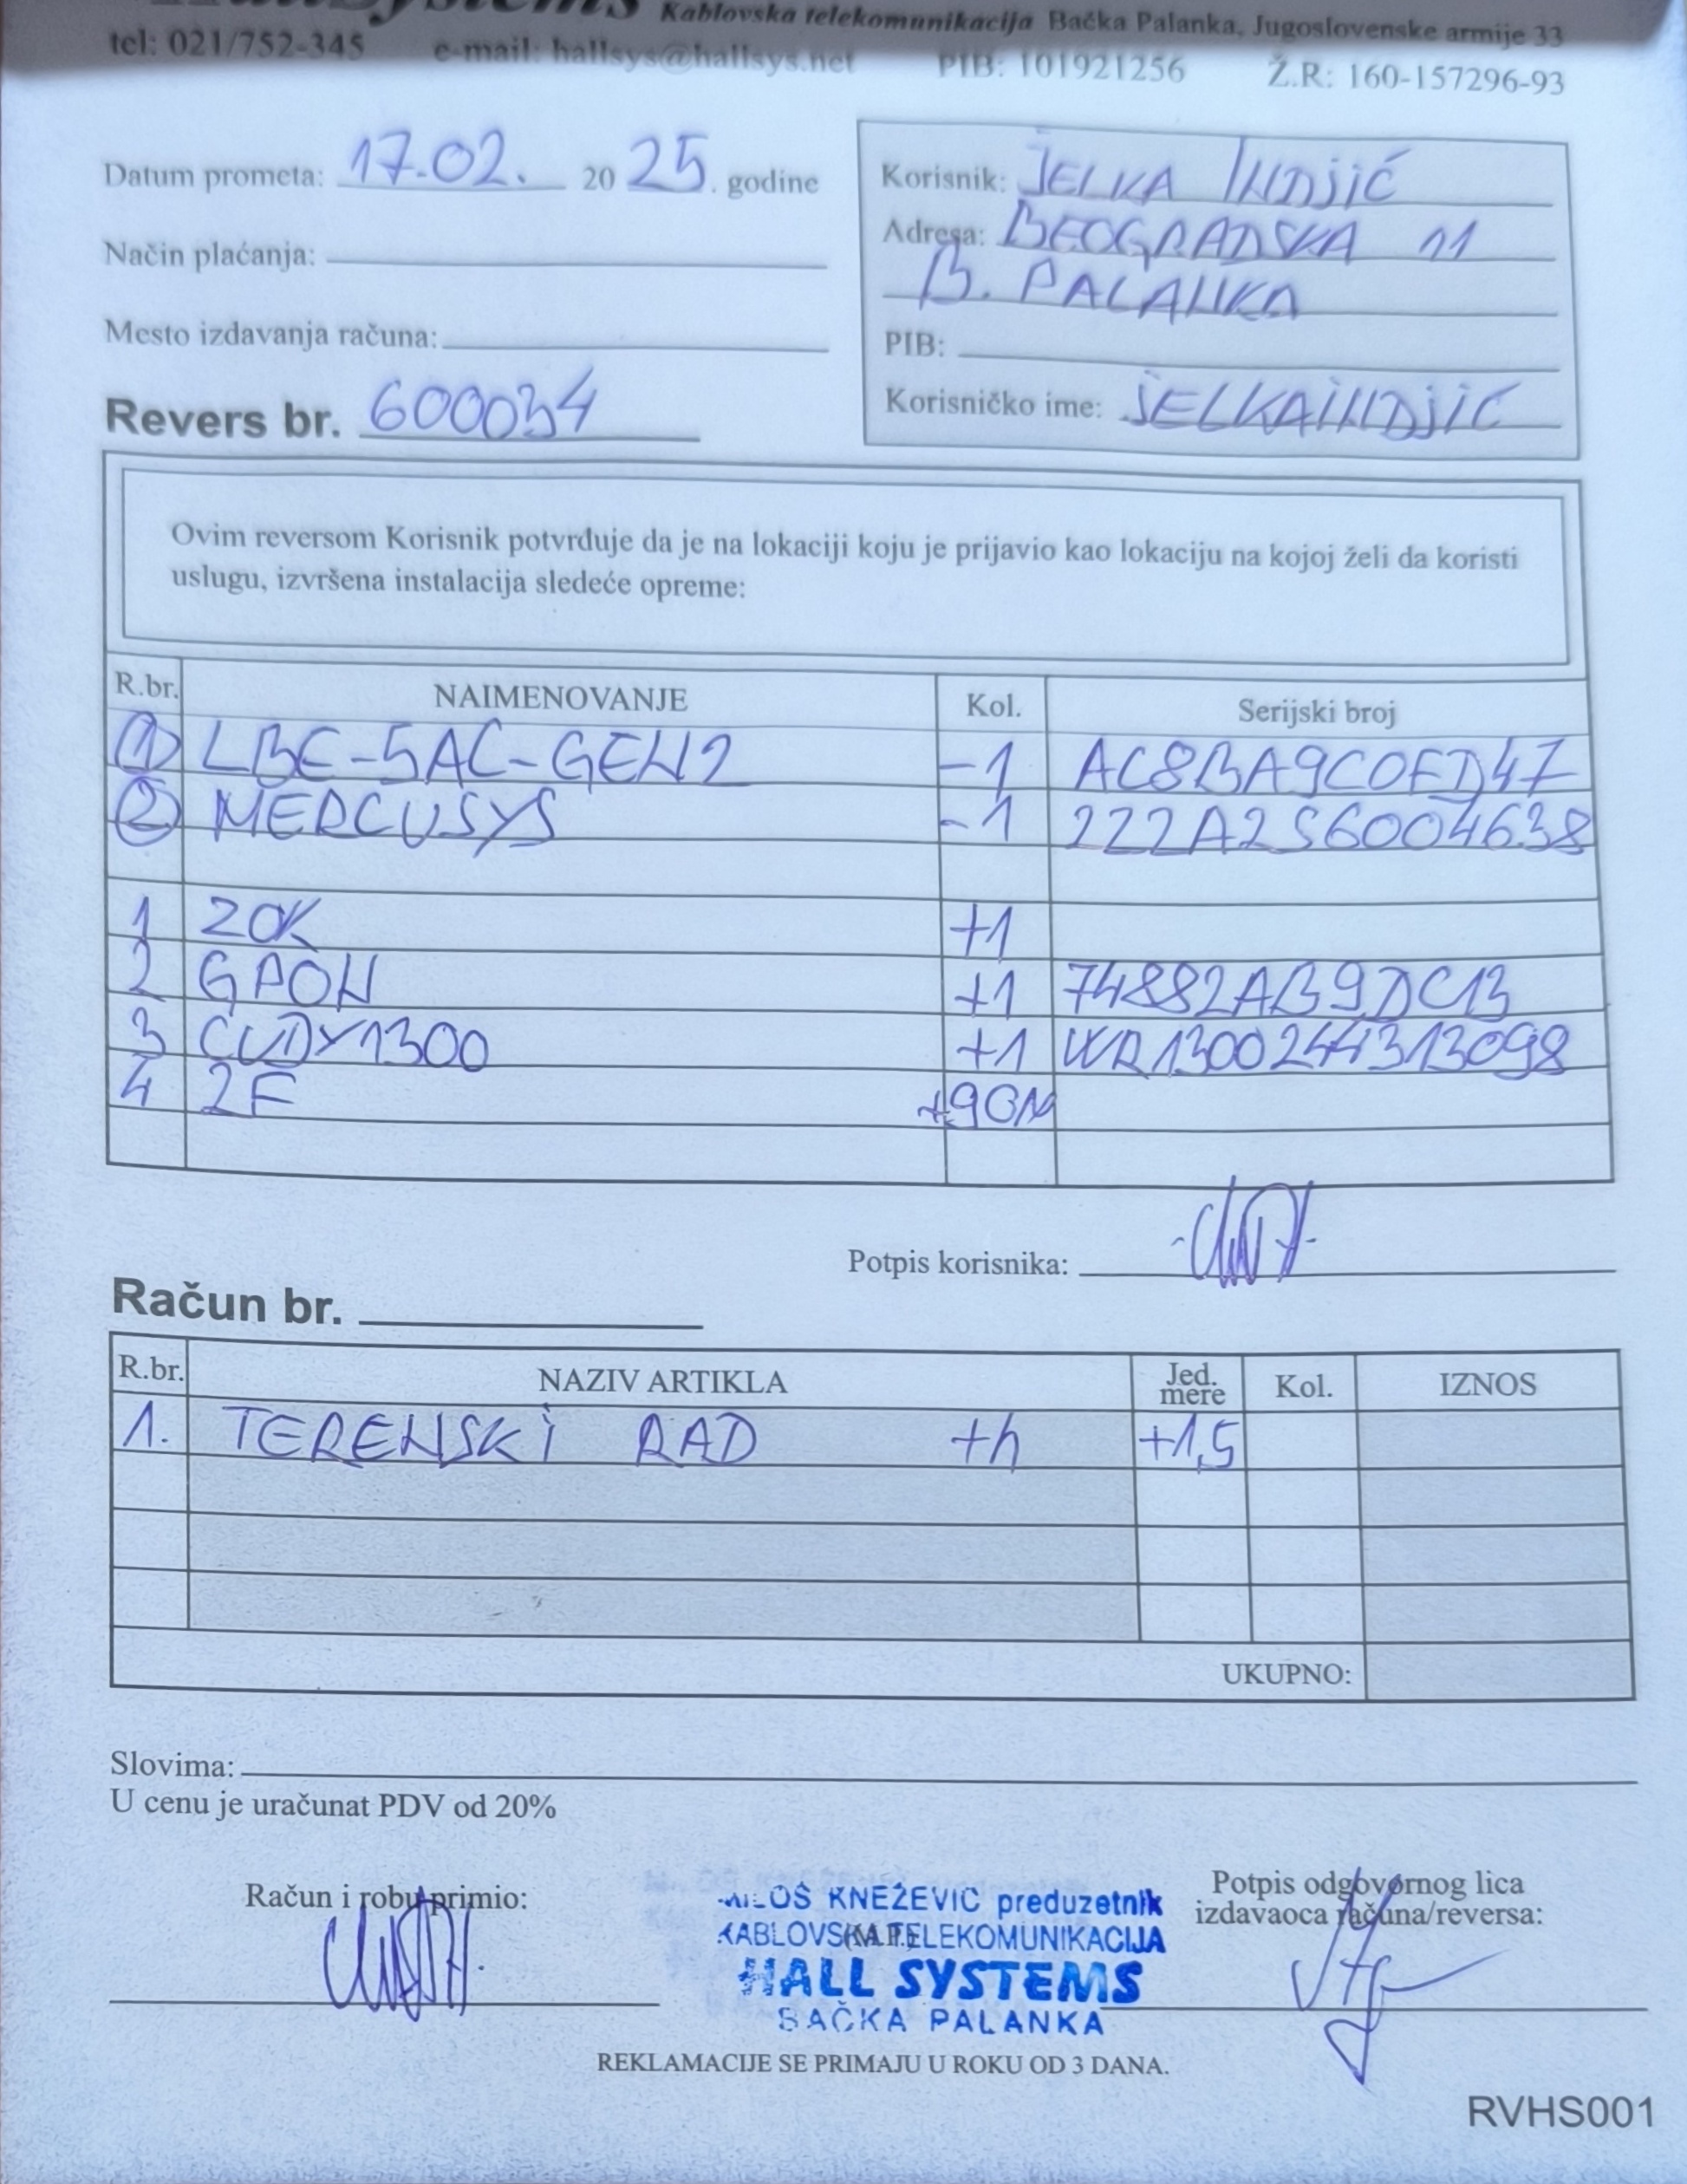 HallSystems Kablovska telekomunikacija Bačka Palanka, Jugoslovenske armije 33
tel: 021/752-345 e-mail: hallsys@hallsys.net PIB: 101921256 Ž.R: 160-157296-93
Datum prometa: 17.02. 2025. godine
Način plaćanja:
Mesto izdavanja računa:
Revers br. 600034
Korisnik: JELKA INDJIĆ
Adresa: BEOGRADSKA 11
B. PALANKA
PIB:
Korisničko ime: JELKAINDJIC
Ovim reversom Korisnik potvrđuje da je na lokaciji koju je prijavio kao lokaciju na kojoj želi da koristi
uslugu, izvršena instalacija sledeće opreme:
R.br. NAIMENOVANJE Kol. Serijski broj
1 LBE-5AC-GEN2 -1 AC8BA9C0FD47
2 MERCUSYS -1 222A2S6004638
1 ZOK +1
2 GPON +1 74882AB9DC13
3 CUDY1300 +1 WR1300244313098
4 2F +90M
Potpis korisnika:
Račun br.
R.br. NAZIV ARTIKLA Jed. mere Kol. IZNOS
1. TERENSKI RAD +h +1,5
UKUPNO:
Slovima:
U cenu je uračunat PDV od 20%
Račun i robu primio:
MILOŠ KNEŽEVIĆ preduzetnik
KABLOVSKA TELEKOMUNIKACIJA
(M.P.)
HALL SYSTEMS
BAČKA PALANKA
Potpis odgovornog lica
izdavaoca računa/reversa:
REKLAMACIJE SE PRIMAJU U ROKU OD 3 DANA.
RVHS001